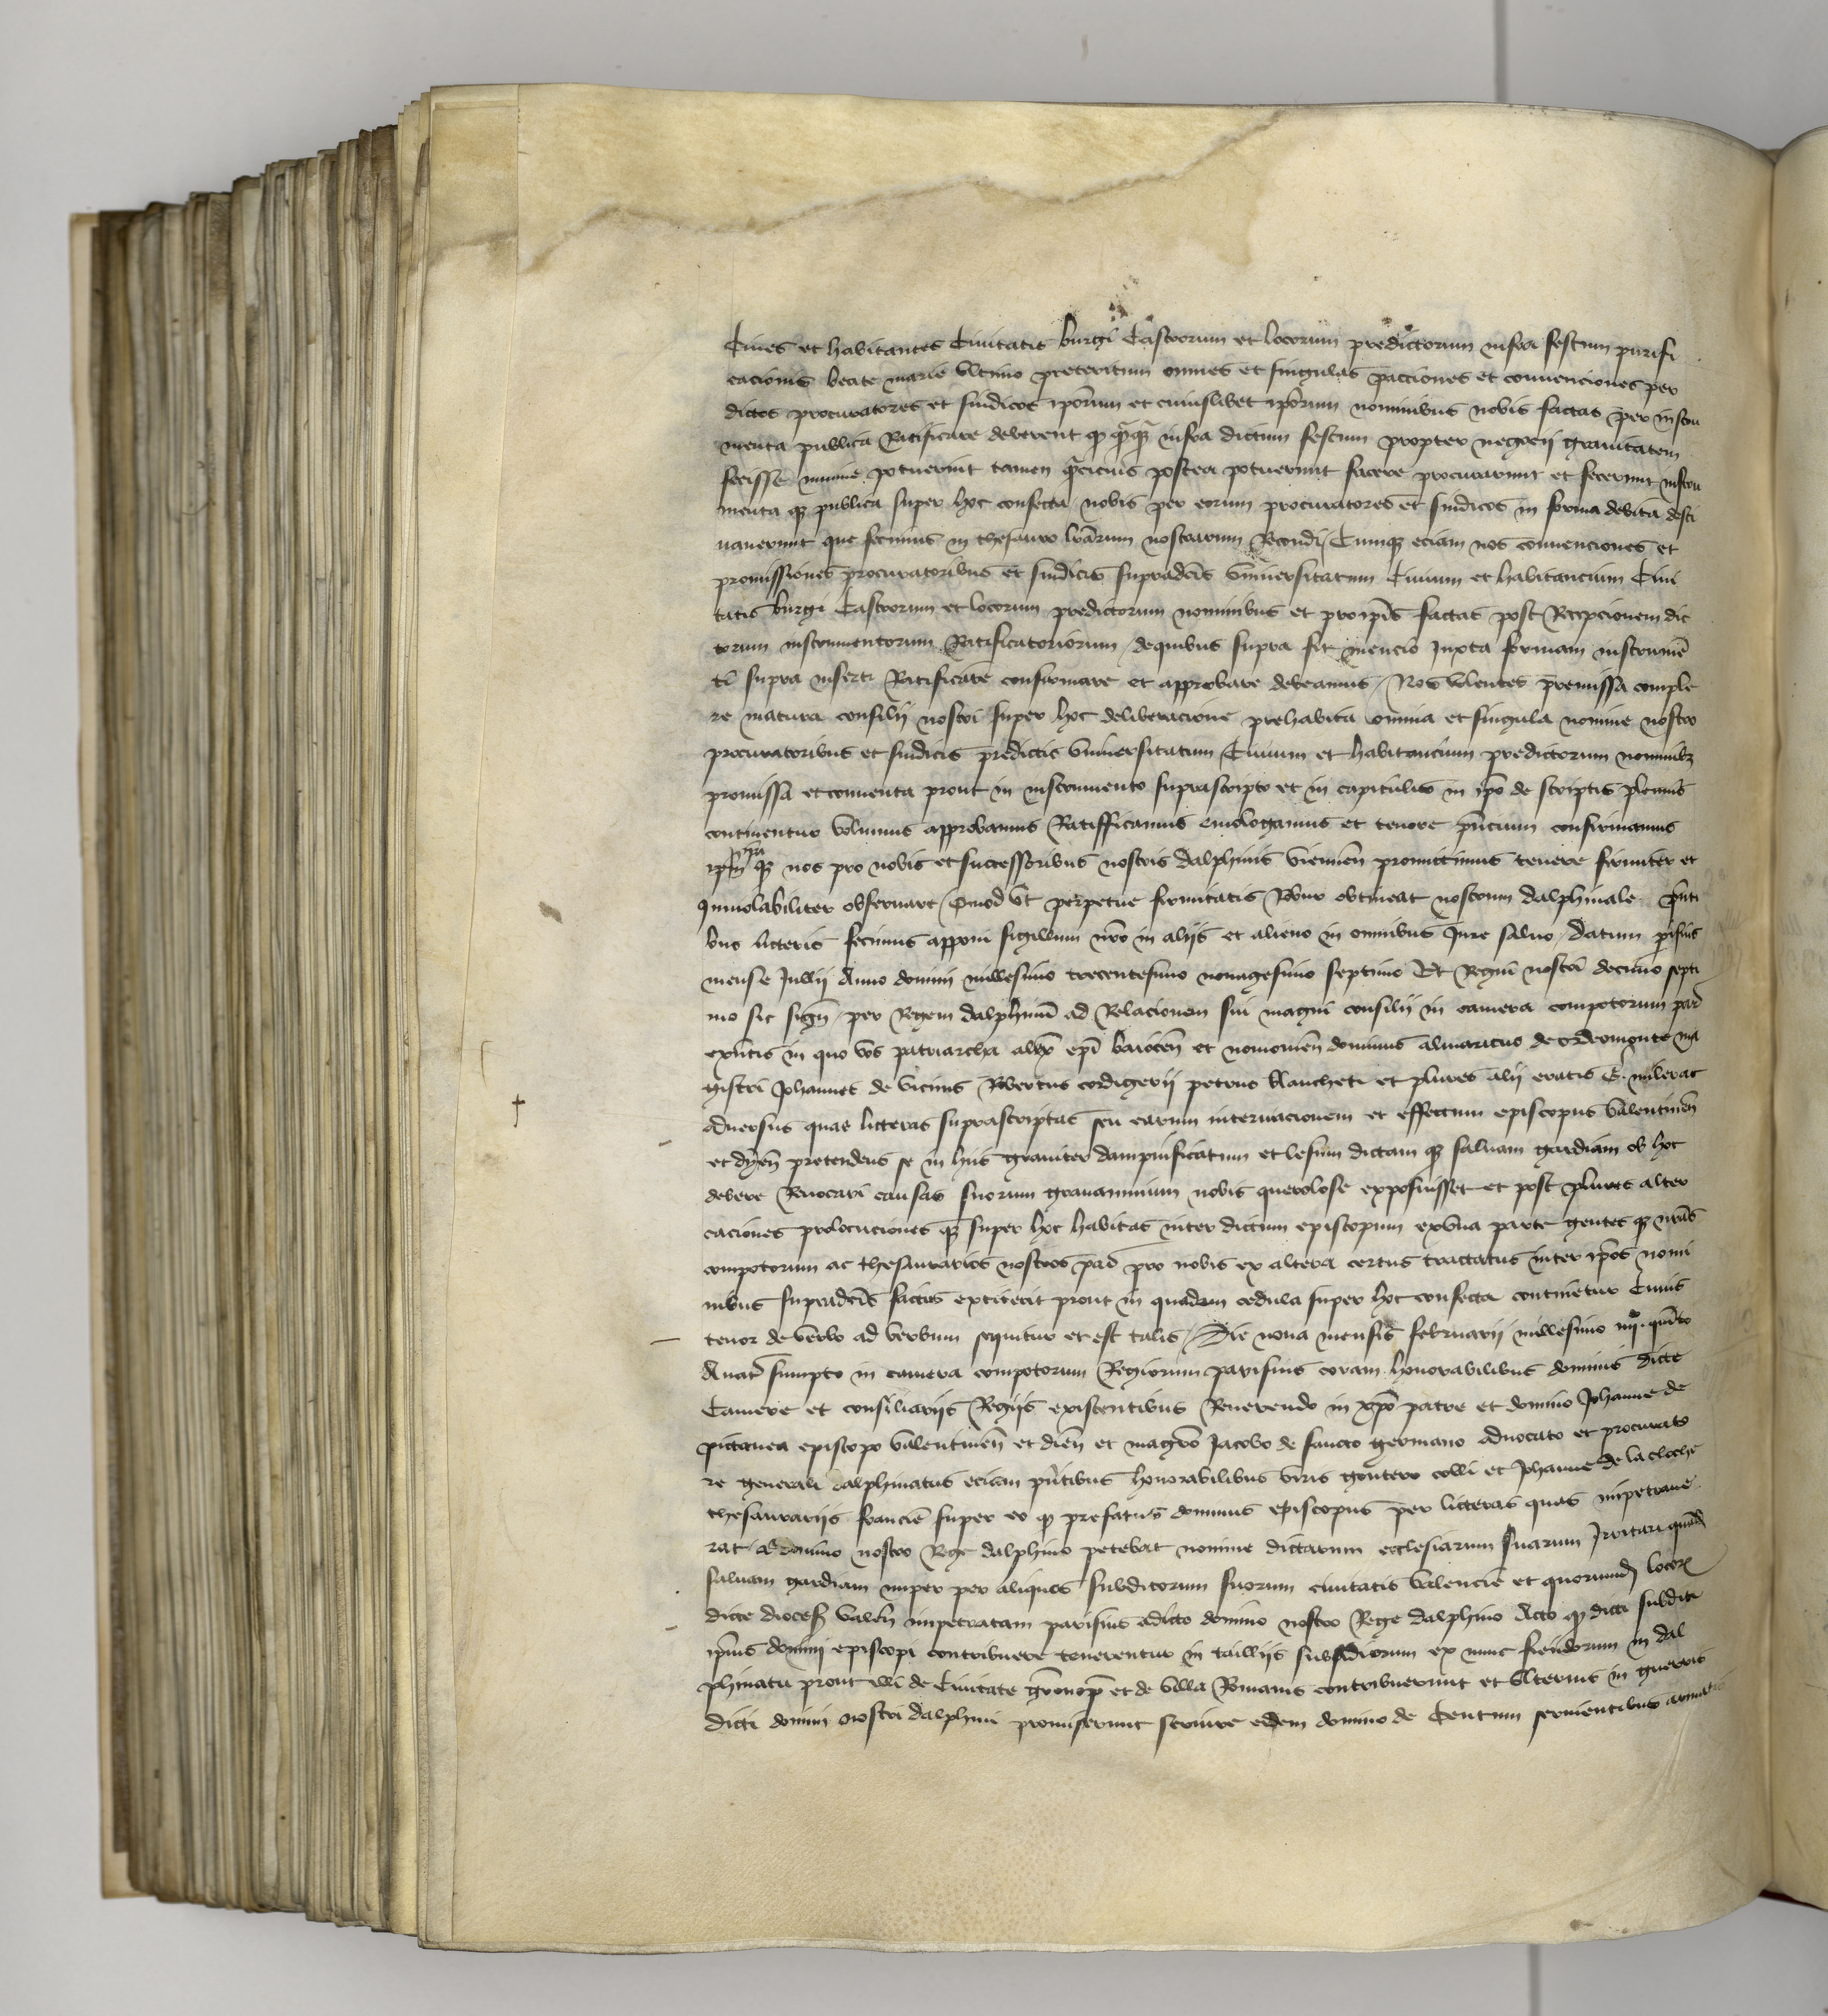 Ciues et habitantes Ciuitatis burgi Castrorum et locorum predictorum infra festum purifi
cacionis beate marie vltimo preteritum omnes et singulas pacciones et conuenciones per
dictos procuratores et sindicos ipōrum et cuiuslibet ipōrum nominibus nobis factas per instru
menta publica Ratificare deberent infra dictum festum propter negocii grauitatem
fecisse minime potuerint tamen postea potuerunt facere procurarunt et fecerunt instru
menta qʒ publica super hoc confecta nobis per eorum procuratores et sindicos in forma debita desti
nauerunt que fecimus in thesauro lrārum nostrarum Recondi / Cumqʒ eciam nos conuenciones et
promissiones procuratoribus et sindicis supradcīs vniuersitatum Ciuium et habitancium Ciui
tatis burgi Castrorum et locorum predictorum nominibus et pro ipīs factas post Recepcionem dic
torum instrumentorum Ratificatoriorum / de quibus supra fit mencio Juxta formam instrumē
ti supra inserti Ratificare confirmare et approbare debeamus / Nos volentes premissa comple
re matura consilii nostri super hoc deliberacione prehabita omnia et singula nomine nostro
procuratoribus et sindicis predictis vniuersitatum Ciuium et habitancium predictorum nominibʒ
promissa et conuenta prout in instrumento suprascripto et in capitulis in ipō descriptis plenius
continentur volumus approbamus Ratifficamus emologamus et tenore pn̄cium confirmamus
ipa qʒ nos pro nobis et successoribus nostris dalphinis viennen̄ promittimus tenere firmiter et
Inuiolabiliter obseruare / Quod vt perpetue firmitatis Robur obtineat nostrum dalphinale pn̄ti
bus litteris fecimus apponi sigillum nr̄o in aliis et alieno in omnibus Jure saluo / datum parisius
mense Jullii Anno domini millesimo trecentesimo nonagesimo septimo Et Regni nostri decimo septi
mo sic sign̄ / per Regem dalphinū ad Relacionem sui magni consilii in camera compotorum par̄
exn̄tis in quo vos patriarcha alex̄ epī baiocen̄ et nouiomen̄ dominus almaricus de ordeomonte ma
gistri Johannes de Robertus cordigerii petrus blancheti et plures alii eratis
aduersus quas litteras suprascriptas seu earum et effectum episcopus valentinen̄
et dyen̄ pretendens se in hiis grauiter dampnificatum et lesum dictam qʒ saluam gardiam ob hoc
debere Reuocari causas suorum grauaminum nobis querolose exposuisset et post plures alter
caciones prolocuciones qʒ super hoc habitas inter dictum episcopum ex vna parte gentes qʒ nr̄as
compotorum ac thesaurarios nostros par̄ pro nobis ex altera certus tractatus inter ipōs nomi
nibus supradcīs factus extiterit prout in quadam cedula super hoc confecta continetur Cuius
tenor de verbo ad verbum sequitur et est talis / Die nona mensis februarii millesimo iiijᶜ. quīto
Auar̄ sumpto in camera compotorum Regiorum parisius coram honorabilibus dominis dicte
Camere et consiliariis Regiis existentibus Reuerendo in xp̄o patre et domino Johanne de
pictauia episcopo valentinen̄ et dien̄ et magr̄o Jacobo de sancto germano aduocato et procurato
re generali dalphinatus eciam pn̄tibus honorabilibus viris gontero colli et Johanne de la cloche
thesaurariis francie super eo qʒ prefatus dominus episcopus per litteras quas impetraue
rat a domino nostro Rege dalphino petebat nomine dictarum ecclesiarum suarum Irritari quād
saluam gardiam nuper per aliquos subditorum suorum ciuitatis valencie et quorumd̄ locoʒ
dicte dioces̄ valen̄ impetratam parisius a dicto domino nostro Rege dalphino Acto qʒ dicti subditi
ipīus domini episcopi contribuere tenerentur in tailliis subsidiorum ex nunc fiendorum in dal
phinatu prout illi de Ciuitate gronop̄ et de villa Romanis contribuerunt et vlterius in guerris
dicti domini nostri dalphini promiserunt seruire eidem domino de Centum seruientibus armatis